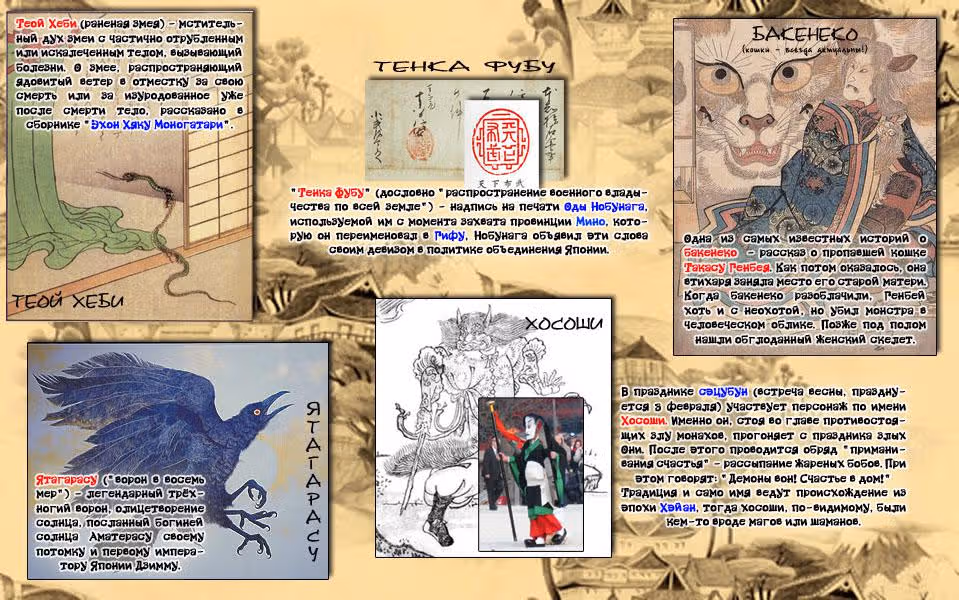 Теой Хеби (раненая змея) - мститель-
ный дух змеи с частично отрубленным
или искалеченным телом, вызывающий
болезни. О змее, распространяющий
ядовитый ветер в отместку за свою
смерть или за изуродованное уже
после смерти тело, рассказано в
сборнике "Эхон Хяку Моногатари".
ТЕОЙ ХЕБИ
ТЕНКА ФУБУ
天下布武
"Тенка Фубу" (дословно "распространение военного влады-
чества по всей земле") - надпись на печати Оды Нобунага,
используемой им с момента захвата провинции Мино, кото-
рую он переименовал в Гифу. Нобунага объявил эти слова
своим девизом в политике объединения Японии.
БАКЕНЕКО
(кошки - всегда актуальны!)
Одна из самых известных историй о
бакенеко - рассказ о пропавшей кошке
Такасу Генбея. Как потом оказалось, она
втихаря заняла место его старой матери.
Когда бакенеко разоблачили, Генбей
хоть и с неохотой, но убил монстра в
человеческом облике. Позже под полом
нашли обглоданный женский скелет.
ЯТАГАРАСУ
Ятагарасу ("ворон в восемь
мер") - легендарный трёх-
ногий ворон, олицетворение
солнца, посланный богиней
солнца Аматерасу своему
потомку и первому импера-
тору Японии Дзимму.
ХОСОШИ
В празднике сэцубун (встреча весны, праздну-
ется 3 февраля) участвует персонаж по имени
Хосоши. Именно он, стоя во главе противостоя-
щих злу монахов, прогоняет с праздника злых
Они. После этого проводится обряд "примани-
вания счастья" - рассыпание жареных бобов. При
этом говорят: "Демоны вон! Счастье в дом!"
Традиция и само имя ведут происхождение из
эпохи Хэйан, тогда хосоши, по-видимому, были
кем-то вроде магов или шаманов.